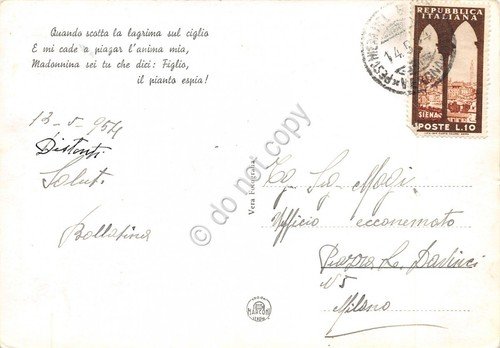 Quando scotta la lagrima sul ciglio
E mi cade a piagar l'anima mia,
Madonnina sei tu che dici: Figlio,
il pianto espia!
13-5-954
Distinti
Saluti
Vera Fotografia
Sig Magi
Ufficio ecconomato
Piazza L. Davinci
N 5
Milano
REPUBBLICA
ITALIANA
SIENA
POSTE L.10
do not copy